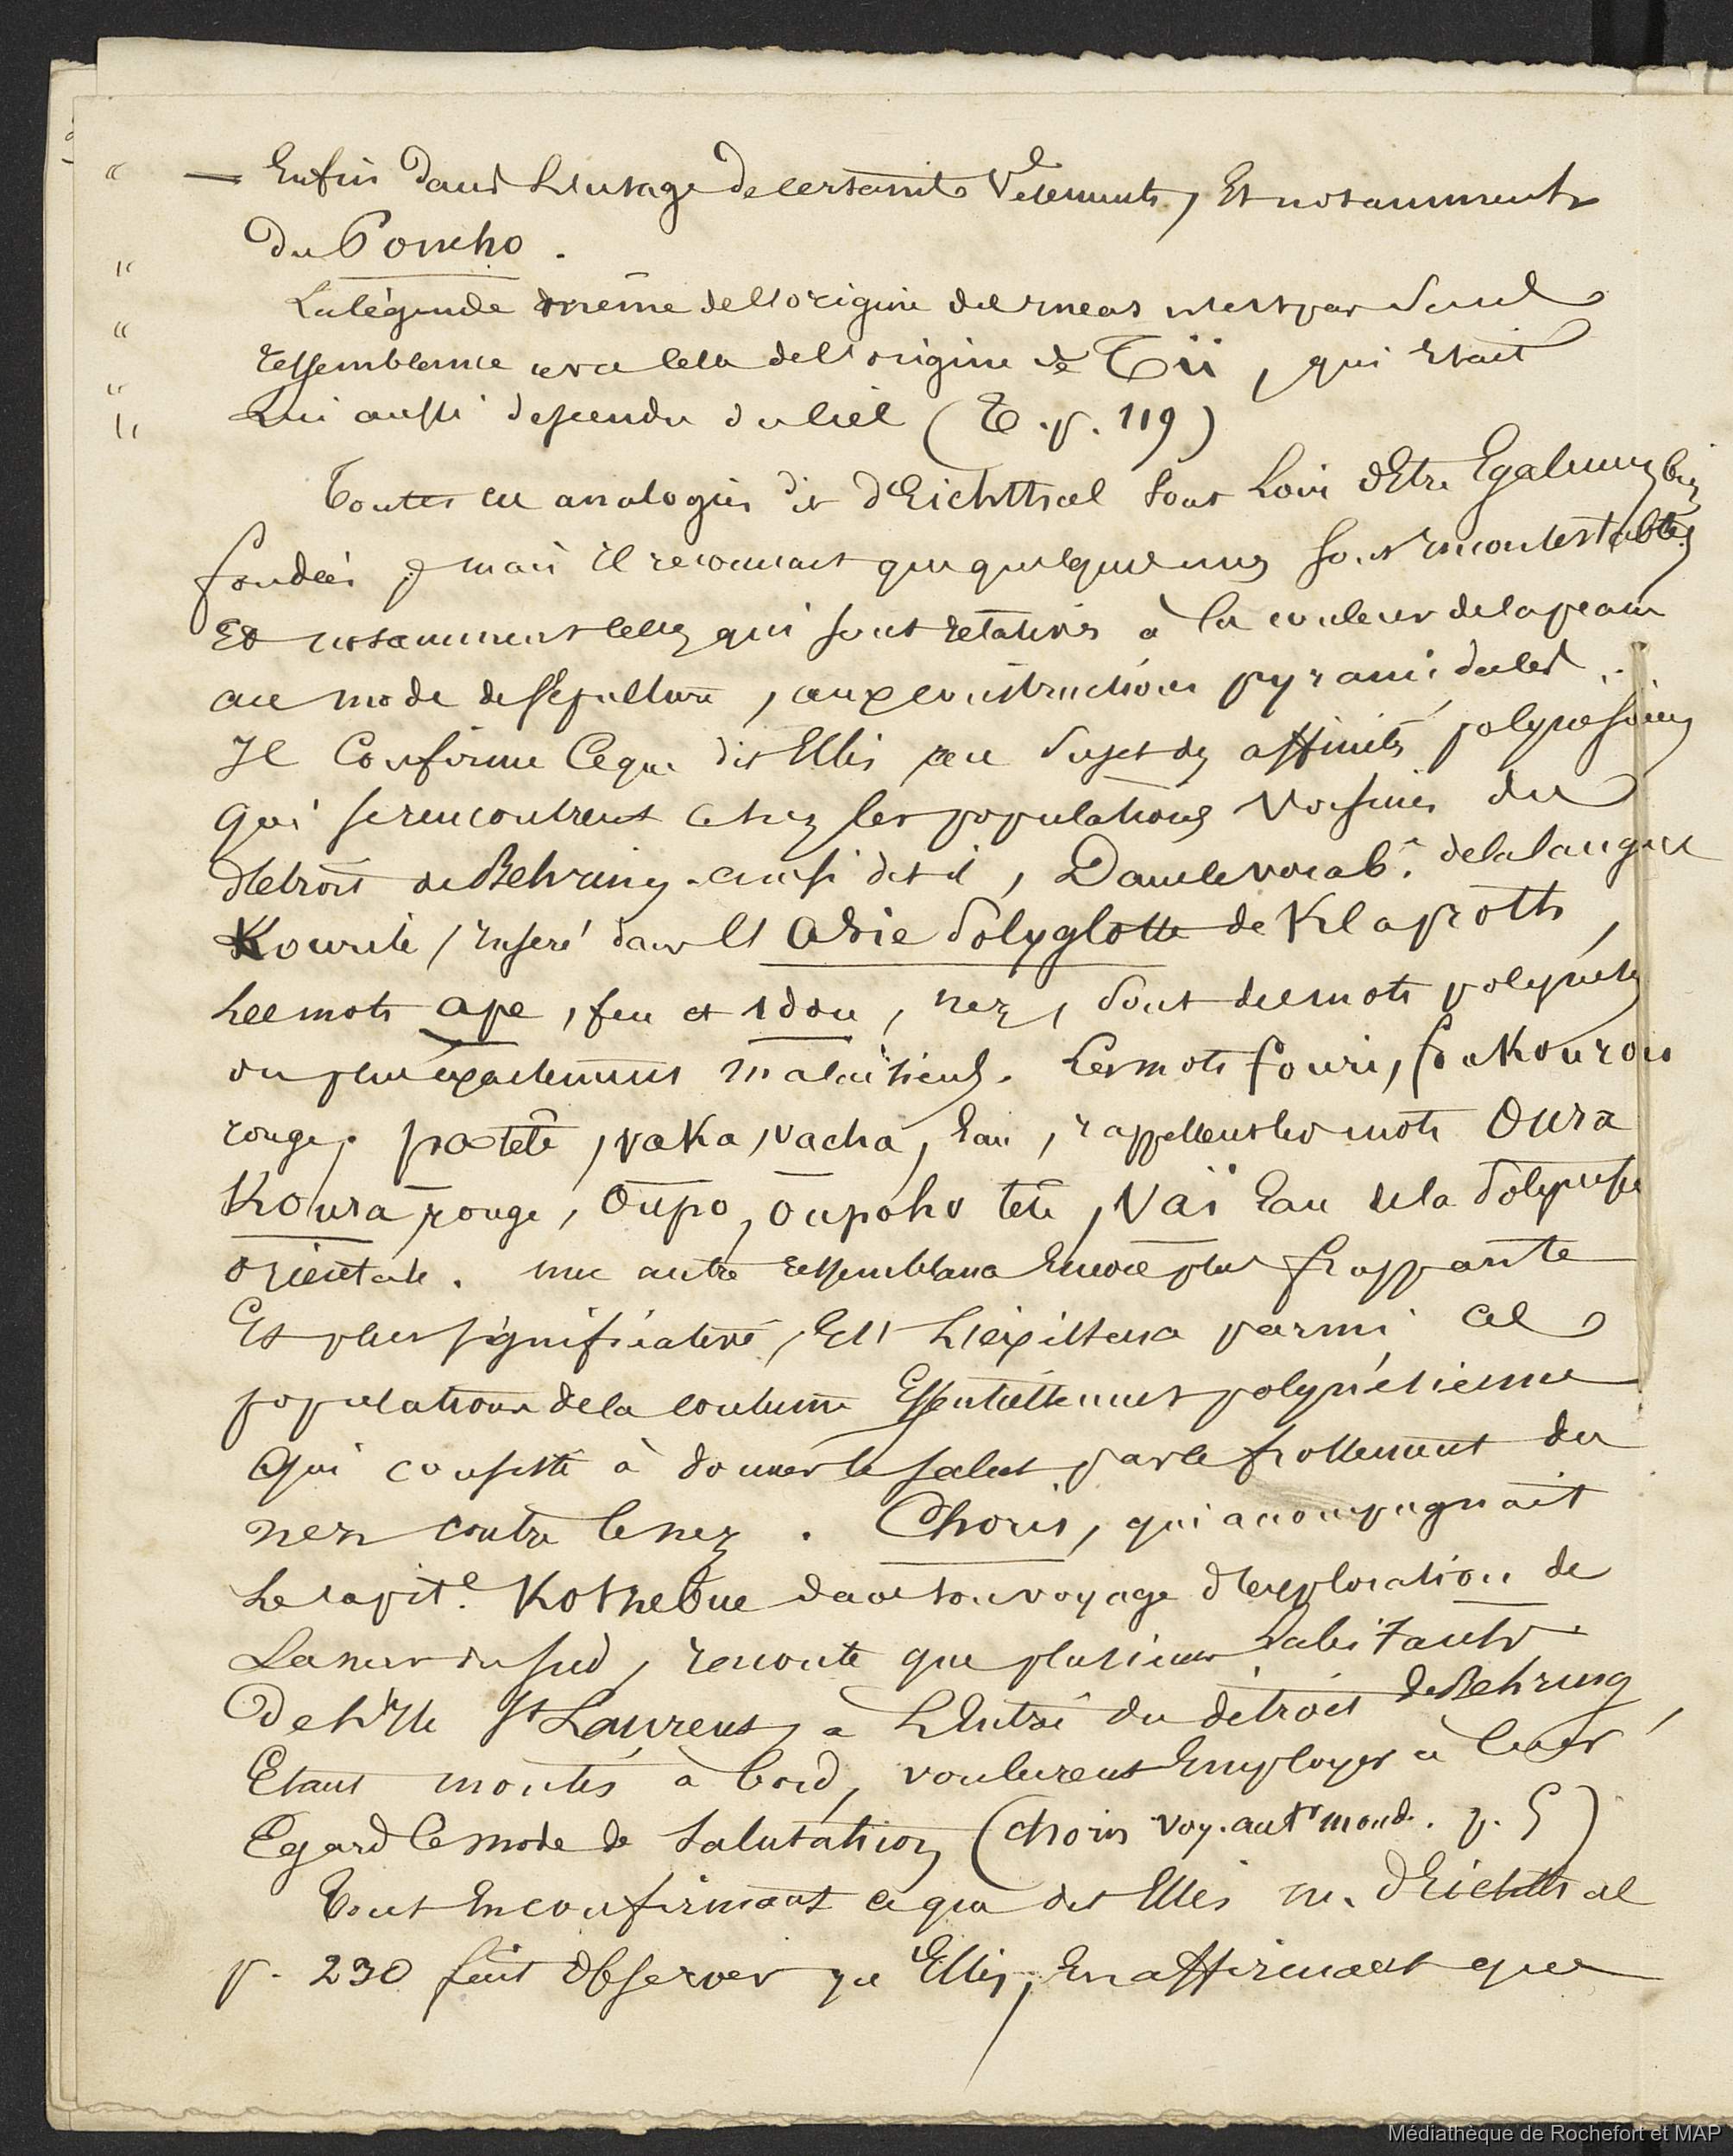 " — Enfin dans L'usage de certains Vêtements, Et notamment
" du Poncho.
" La légende même de l'origine des Incas n'est pas sans
" ressemblance avec celle de l'origine de Tii, qui Etait
" Lui aussi descendu du Ciel (E. p. 119)
Toutes ces analogies dit d'Eichtthal sont Loin d'Etre Egalement bien
fondées ; mais Il reconnait que quelques unes sont Incontestables
Et notamment celles qui sont relatives à la couleur de la peau
au mode de sépulture, aux constructions pyramidales.
Il Confirme Ce que dit Ellis au sujet des affinités polynésiennes
Qui se rencontrent chez les populations Voisines du
détroit de Behring. ainsi dit-il, Dans le vocab.re de la langue
Kourile, Inséré dans l'Asie Polyglotte de Klaproth,
Les mots ape, feu et idou, nez, sont des mots polynésiens
ou plus exactement malaisiens. Les mots fouri, foukourou
rouge, pa tête, vaka, vacha, Eau, rappellent les mots Oura
Koura rouge, Oupo, Oupoho tête, Vaï Eau de la Polynésie
orientale. une autre ressemblance Encore plus frappante
Et plus significative, Est L'existence parmi ces
populations de la coutume Essentiellement polynésienne
Qui consiste à donner le salut par le frottement du
nez contre le nez. Choris, qui accompagnait
Le capit.e Kotzebue dans son voyage d'exploration de
La mer du sud, raconte que plusieurs habitants
De L'Ile St Laurent, à L'Entrée du détroit de Behring,
Etant montés à bord, voulurent Employer à leur
Egard Ce mode de salutation (Choris Voy. aut.r mond. p. 5)
Tout En confirmant ce que dit Ellis m. d'Eichtthal
p. 230 fait Observer qu'Ellis, En affirmant que
Médiathèque de Rochefort et MAP